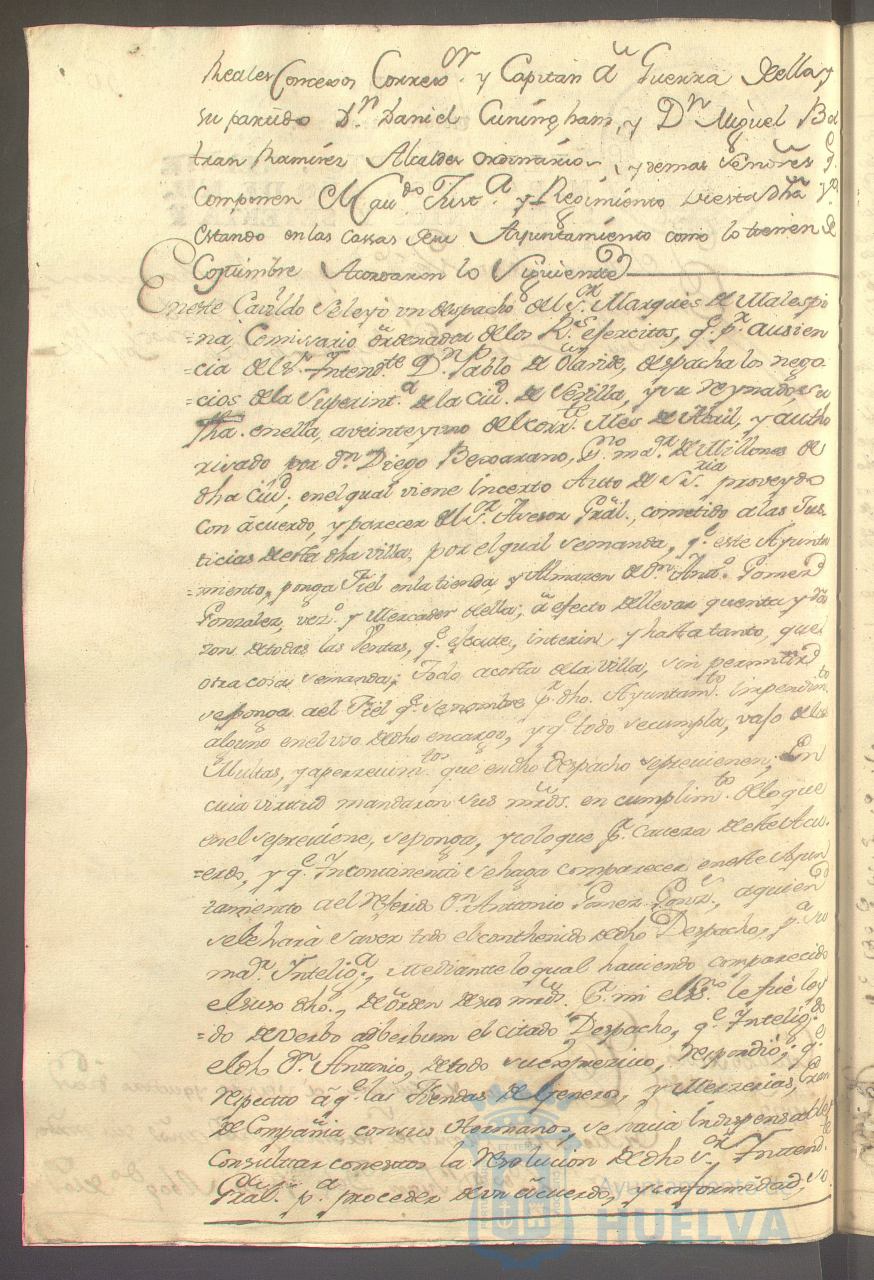 Reales Consejos Corregor. y Capitan â Guerra de ella y
su partido Dn. Daniel Cuningham, y Dn. Miguel Bel
tran Ramirez Alcaldes ordinarios, y demas Señores q.
componen el Caudo. Justa. y Regimiento de esta dha va.
estando en las cassas de su Ayuntamiento como lo tienen de
Costumbre Acordaron lo Siguiente
En este Cavildo se leyó un despacho del Sr. Marques de Malespi
=na, Comisario ordenador de los Rs. exercitos, qe. pr. ausien
=cia del Sr. Intendte. Dn. Pablo de Olavide, despacha los nego
=cios de la Superinta. de la Ciud. de Sevilla, y su Reynado, su
fha. en ella, a veinte y uno del corrte. Mes de Abril, y autho
rizado por dn. Diego Bejarano, Esno. mar. de Millones de
dha Ciud; en el qual viene incerto Auto de Sria. proveydo
con acuerdo, y parecer del Sr. Asesor Gral., cometido a las Jus
ticias de esta dha villa, por el qual se manda, qe. este Ayunta
=miento, ponga Fiel en la tienda, y Almazen de dn. Anto. Gomez
Gonzalez, vezo. y Mercader de ella; â efecto de llevar quenta y ra
zon de todas las Ventas, qe. efectue, interin, y hasta tanto, que
otra cosa se manda; Todo acosta de la villa, sin permitir
se ponga a el Fiel qe. se nombre pr. dho. Ayuntamto. impedimto.
alguno en el uso de dho encargo, y qe. todo se cumpla, vajo de las
Multas, y apercevimtos. que en dho despacho se previenen; En
cuia virtud mandaron sus mrds. en cumplimto. de lo que
en el se previene, se ponga, y coloque pr. caveza de este Acu
=erdo, y qe. Yncontinenti se haga comparecer en este Ayun
tamiento a el referido Dn. Antonio Gomez Gonz., a quien
se le hará saver todo el conthenido de dho Despacho, pa. su
mar. Inteliga., Mediante lo qual haviendo comparecido
el suso dho., de orden de sus mrds. Pr. mi el Esno. le fue ley
=do de verbo adberbum el citado Despacho, qe. Inteligdo.
el dho Dn. Antonio, de todo su expresivo, respondió; qe.
respecto a qe. las Tiendas de Generos, y Mercerias, eran
de Compañia con sus Hermanos, se hacia indispensable
Consultar con estos la resolucion de dho Sr. Intendte.
Gral. pa. proceder de un acuerdo, y conformidad, so
Ayuntamiento de
HUELVA